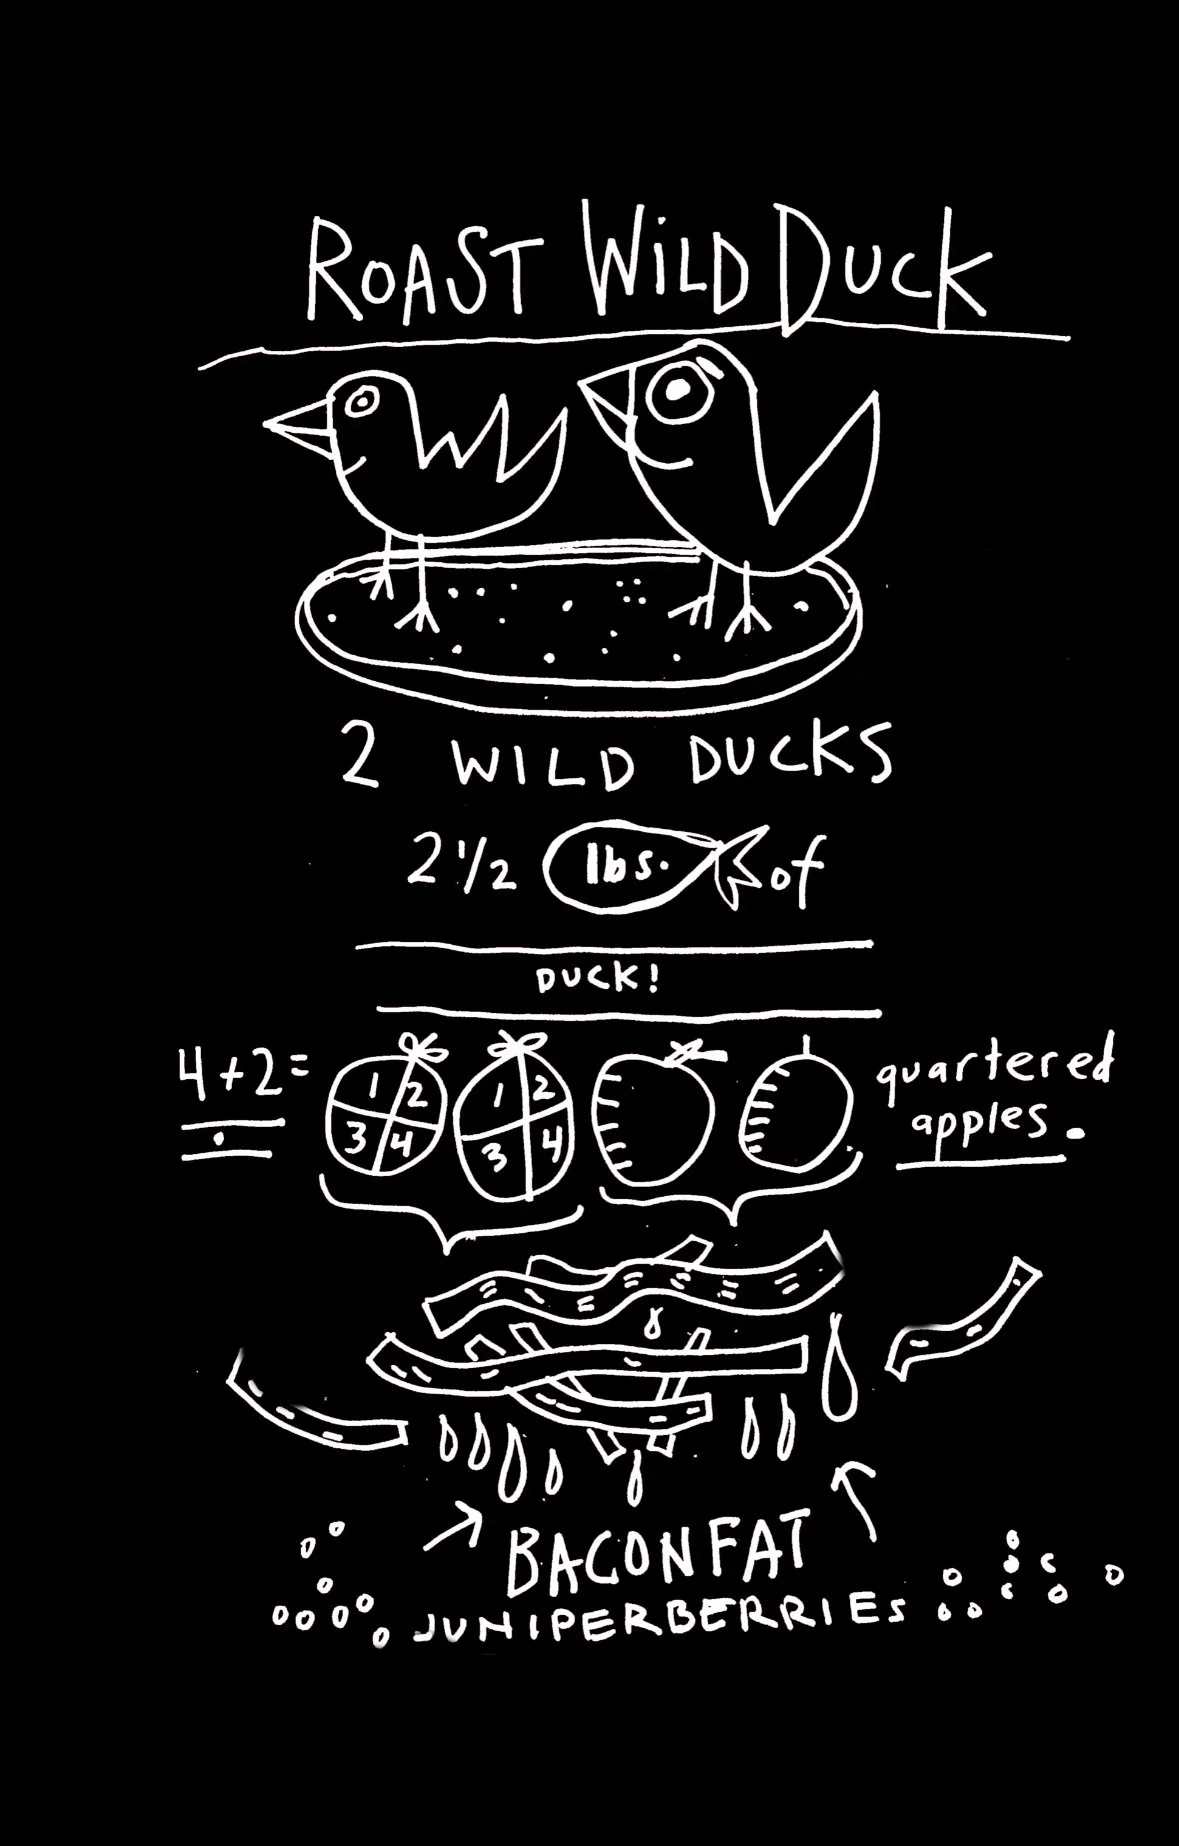 ROAST WiLD DUCK
2 WILD DUCKS
2 1/2 lbs. of
DUCK!
4+2=
1 2
3 4
1 2
3 4
quartered
apples.
BACON FAT
JUNIPERBERRIES